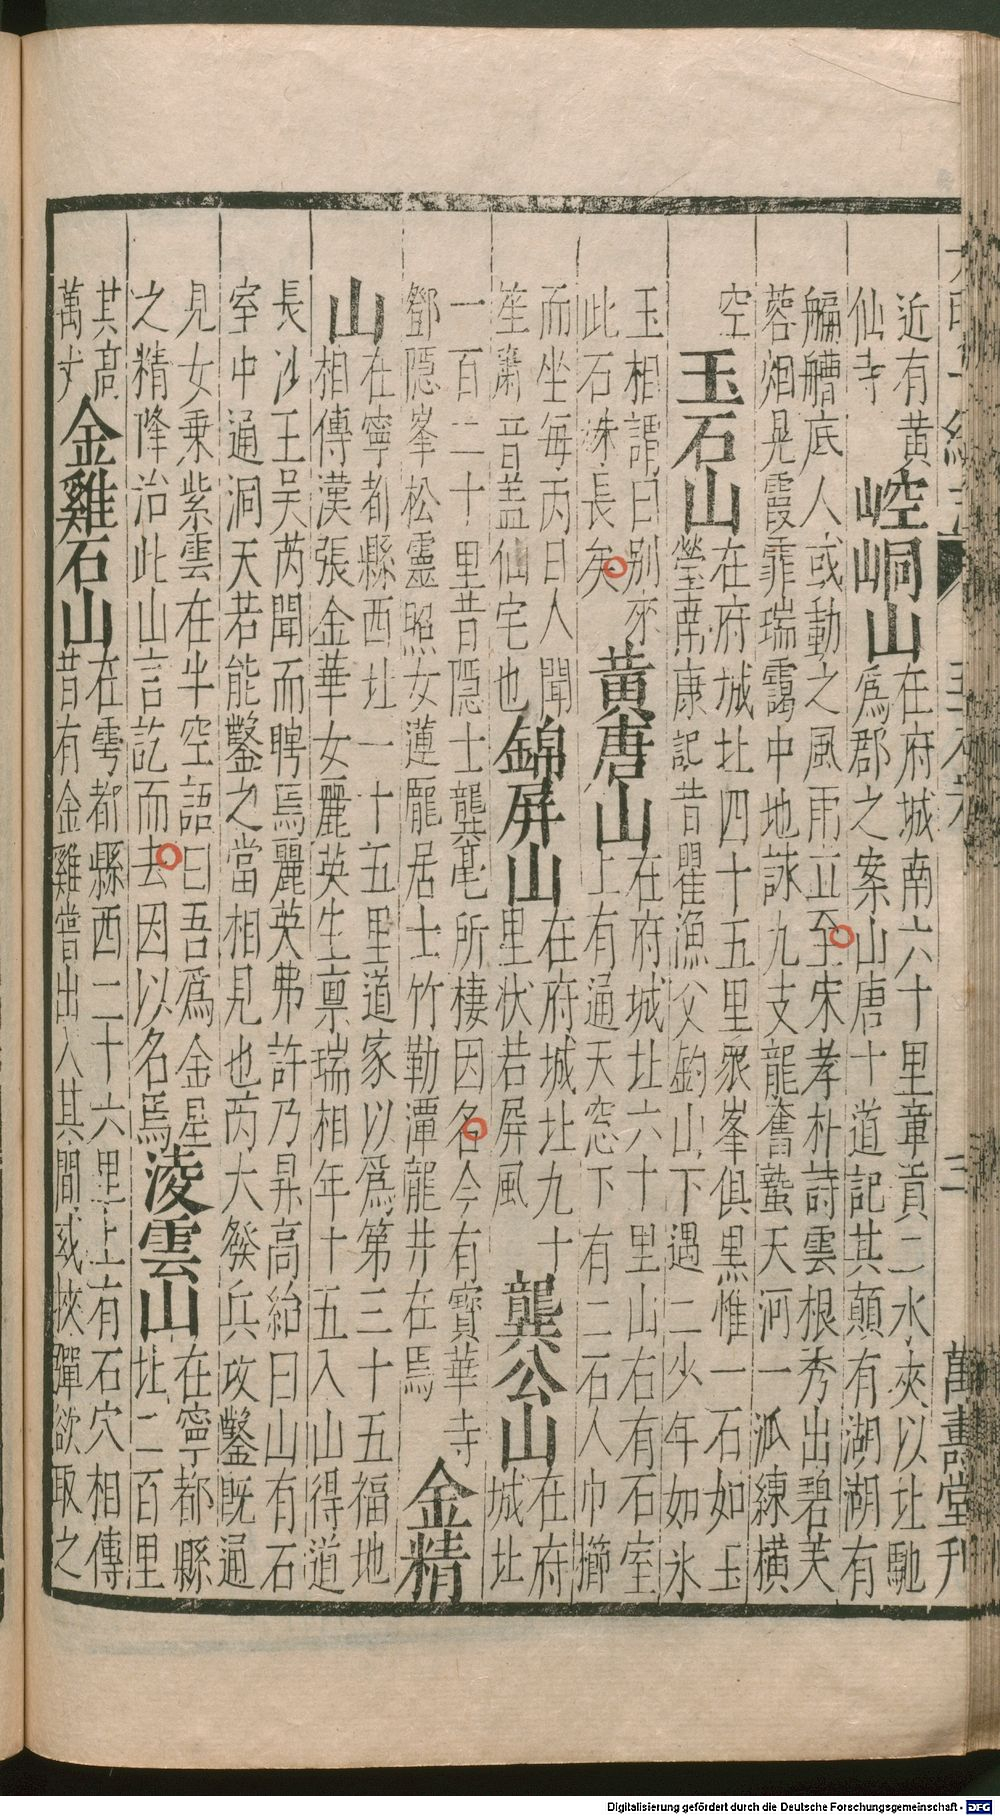 大明一統志
三
萬壽堂刋
近有黃
仙寺
崆峒山
在府城南六十里章貢二水夾以北馳
爲郡之案山唐十道記其顛有湖湖有
艑艚底人或動之風雨立至宋孝朴詩雲根秀出碧芙
蓉烟晃霞霏瑞靄中地訣九支龍奮蟄天河一派練橫
空
玉石山
在府城北四十五里衆峯俱黑惟一石如玉
瑩南康記昔瞿漁父釣山下遇二少年如氷
玉相謂曰別來
此石姝長矣
黃唐山
在府城北六十里山右有石室
上有通天窓下有二石人巾櫛
而坐每丙日人聞
笙簫音盖仙宅也
錦屏山
在府城北九十
里狀若屏風
龔公山
在府
城北
一百二十里昔隱士龔亳所棲因名今有寶華寺
鄧隱峯松靈照女蓮龐居士竹勒潭龍井在焉
金精
山
在寧都縣西北一十五里道家以爲第三十五福地
相傳漢張金華女麗英生禀瑞相年十五入山得道
長沙王吳芮聞而聘焉麗英弗許乃昇高紿曰山有石
室中通洞天若能鑿之當相見也芮大發兵攻鑿旣通
見女乘紫雲在半空語曰吾爲金星
之精降治此山言訖而去因以名焉
凌雲山
在寧都縣
北二百里
其高
萬丈
金雞石山
在雩都縣西二十六里上有石穴相傳
昔有金雞嘗出入其間或挾彈欲取之
Digitalisierung gefördert durch die Deutsche Forschungsgemeinschaft - DFG